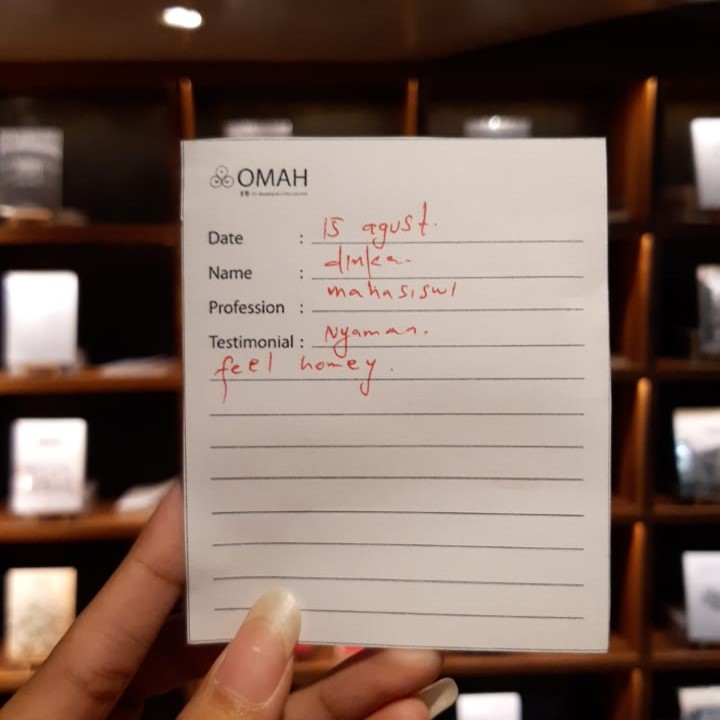 OMAH
Date : 15 agust.
Name : dinka.
Profession : mahasiswi
Testimonial : Nyaman.
feel homey.